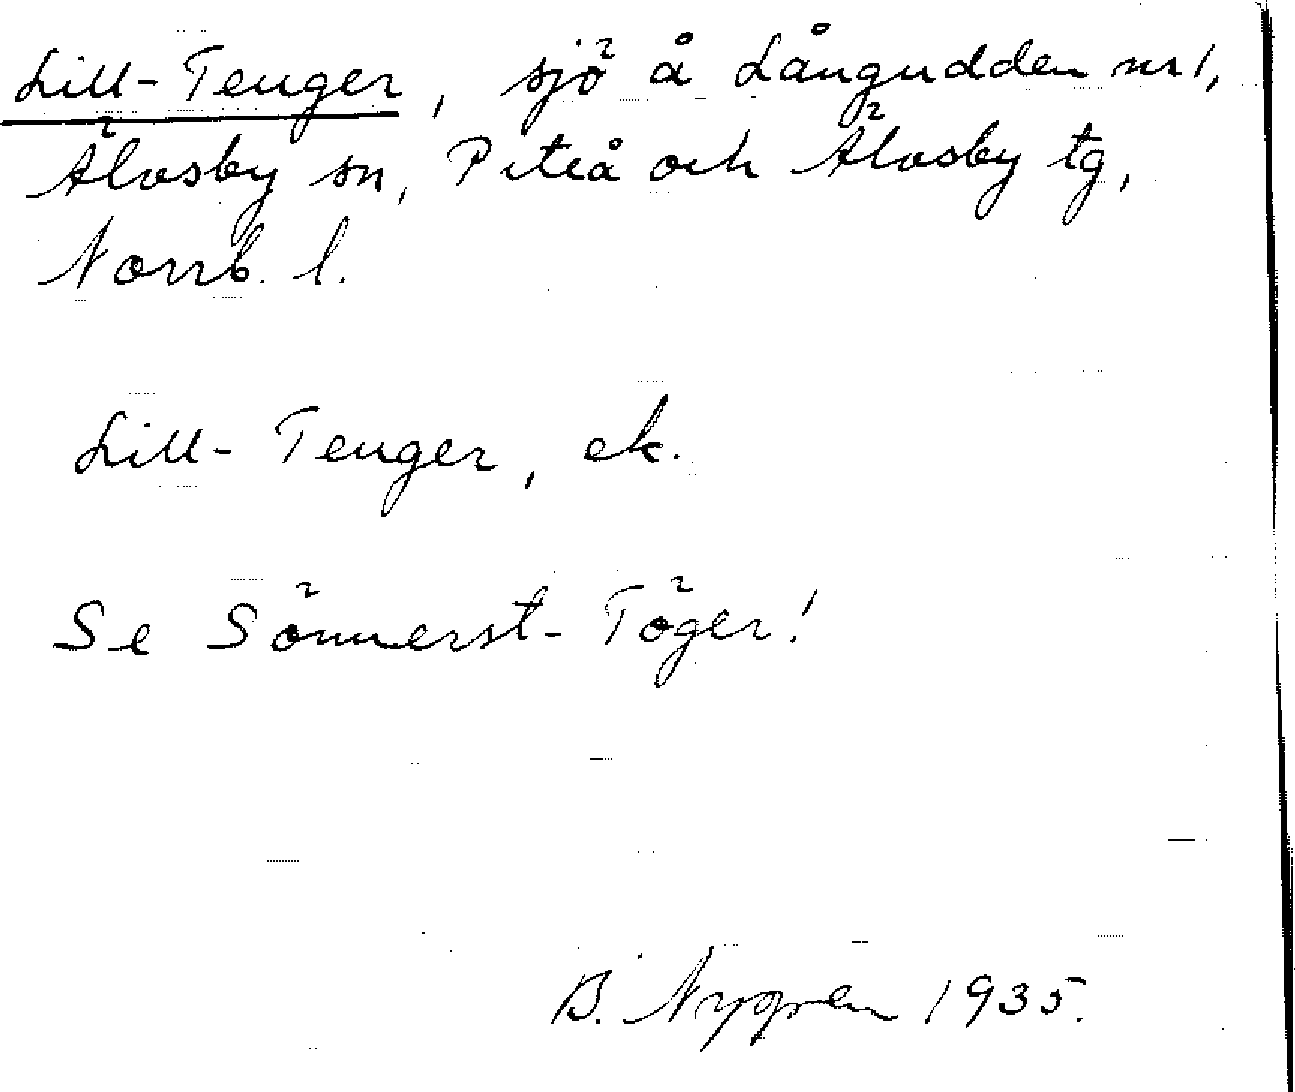 Lill-Tenger, sjö å Långudden nr 1,
Älvsby sn, Piteå och Älvsby tg,
Norrb. l.
Lill-Tenger, ek.
Se Sönnerst-Töger!
B. Nygren 1935.